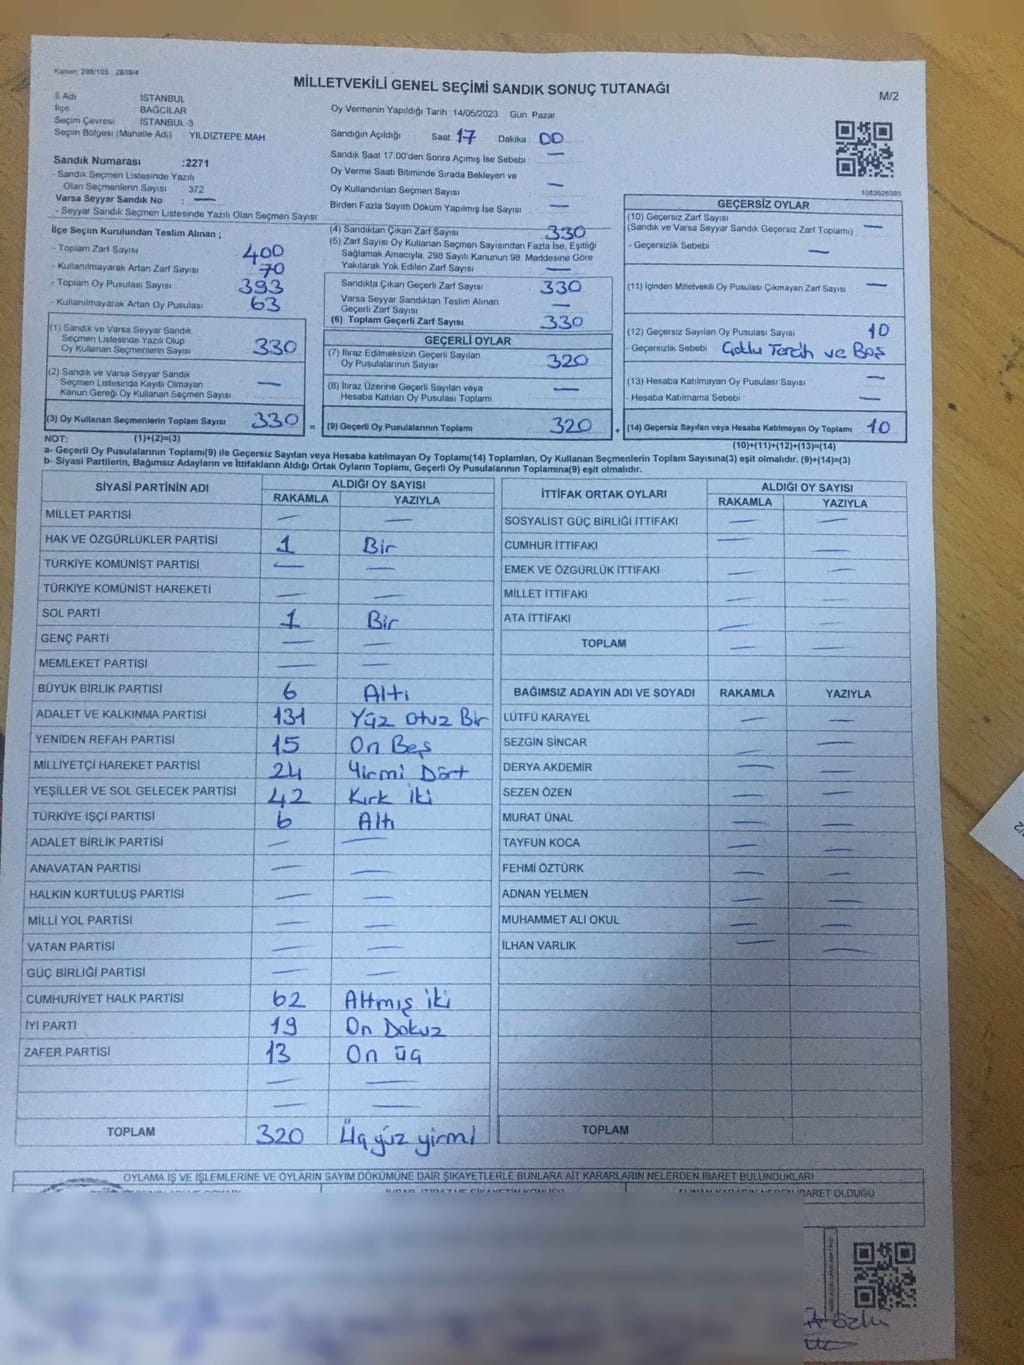 Kanun: 298/105 ; 2839/4
MİLLETVEKİLİ GENEL SEÇİMİ SANDIK SONUÇ TUTANAĞI
M/2
İl Adı İSTANBUL
İlçe BAĞCILAR
Seçim Çevresi İSTANBUL-3
Seçim Bölgesi (Mahalle Adı) YILDIZTEPE MAH.
Oy Vermenin Yapıldığı Tarih 14/05/2023 Gün Pazar
Sandığın Açıldığı Saat 17 Dakika 00
Sandık Saat 17:00'den Sonra Açılmış İse Sebebi : —
Oy Verme Saati Bitiminde Sırada Bekleyen ve
Oy Kullandırılan Seçmen Sayısı —
Birden Fazla Sayım Döküm Yapılmış İse Sayısı —
Sandık Numarası :2271
- Sandık Seçmen Listesinde Yazılı
Olan Seçmenlerin Sayısı : 372
Varsa Seyyar Sandık No : —
- Seyyar Sandık Seçmen Listesinde Yazılı Olan Seçmen Sayısı:
1083626385
İlçe Seçim Kurulundan Teslim Alınan ;
- Toplam Zarf Sayısı 400
- Kullanılmayarak Artan Zarf Sayısı 70
- Toplam Oy Pusulası Sayısı 393
- Kullanılmayarak Artan Oy Pusulası 63
(1) Sandık ve Varsa Seyyar Sandık
Seçmen Listesinde Yazılı Olup
Oy Kullanan Seçmenlerin Sayısı 330
(2) Sandık ve Varsa Seyyar Sandık
Seçmen Listesinde Kayıtlı Olmayan
Kanun Gereği Oy Kullanan Seçmen Sayısı —
(3) Oy Kullanan Seçmenlerin Toplam Sayısı 330 =
(4) Sandıktan Çıkan Zarf Sayısı 330
(5) Zarf Sayısı Oy Kullanan Seçmen Sayısından Fazla İse, Eşitliği
Sağlamak Amacıyla, 298 Sayılı Kanunun 98. Maddesine Göre
Yakılarak Yok Edilen Zarf Sayısı —
Sandıkta Çıkan Geçerli Zarf Sayısı 330
Varsa Seyyar Sandıktan Teslim Alınan
Geçerli Zarf Sayısı —
(6) Toplam Geçerli Zarf Sayısı 330
GEÇERLİ OYLAR
(7) İtiraz Edilmeksizin Geçerli Sayılan
Oy Pusulalarının Sayısı 320
(8) İtiraz Üzerine Geçerli Sayılan veya
Hesaba Katılan Oy Pusulası Toplamı —
(9) Geçerli Oy Pusulalarının Toplamı 320 +
GEÇERSİZ OYLAR
(10) Geçersiz Zarf Sayısı
(Sandık ve Varsa Seyyar Sandık Geçersiz Zarf Toplamı) : —
- Geçersizlik Sebebi : —
(11) İçinden Milletvekili Oy Pusulası Çıkmayan Zarf Sayısı —
(12) Geçersiz Sayılan Oy Pusulası Sayısı 10
- Geçersizlik Sebebi : Çoklu Tercih ve Boş
(13) Hesaba Katılmayan Oy Pusulası Sayısı —
- Hesaba Katılmama Sebebi : —
(14) Geçersiz Sayılan veya Hesaba Katılmayan Oy Toplamı 10
NOT: (1)+(2)=(3)
(10)+(11)+(12)+(13)=(14)
a- Geçerli Oy Pusulalarının Toplamı(9) ile Geçersiz Sayılan veya Hesaba katılmayan Oy Toplamı(14) Toplamları, Oy Kullanan Seçmenlerin Toplam Sayısına(3) eşit olmalıdır. (9)+(14)=(3)
b- Siyasi Partilerin, Bağımsız Adayların ve İttifakların Aldığı Ortak Oyların Toplamı, Geçerli Oy Pusulalarının Toplamına(9) eşit olmalıdır.
SİYASİ PARTİNİN ADI ALDIĞI OY SAYISI
RAKAMLA YAZIYLA
MİLLET PARTİSİ — —
HAK VE ÖZGÜRLÜKLER PARTİSİ 1 Bir
TÜRKİYE KOMÜNİST PARTİSİ — —
TÜRKİYE KOMÜNİST HAREKETİ — —
SOL PARTİ 1 Bir
GENÇ PARTİ — —
MEMLEKET PARTİSİ — —
BÜYÜK BİRLİK PARTİSİ 6 Altı
ADALET VE KALKINMA PARTİSİ 131 Yüz Otuz Bir
YENİDEN REFAH PARTİSİ 15 On Beş
MİLLİYETÇİ HAREKET PARTİSİ 24 Yirmi Dört
YEŞİLLER VE SOL GELECEK PARTİSİ 42 Kırk İki
TÜRKİYE İŞÇİ PARTİSİ 6 Altı
ADALET BİRLİK PARTİSİ — —
ANAVATAN PARTİSİ — —
HALKIN KURTULUŞ PARTİSİ — —
MİLLİ YOL PARTİSİ — —
VATAN PARTİSİ — —
GÜÇ BİRLİĞİ PARTİSİ — —
CUMHURİYET HALK PARTİSİ 62 Altmış iki
İYİ PARTİ 19 On Dokuz
ZAFER PARTİSİ 13 On üç
— —
— —
TOPLAM 320 Üç yüz yirmi
İTTİFAK ORTAK OYLARI ALDIĞI OY SAYISI
RAKAMLA YAZIYLA
SOSYALİST GÜÇ BİRLİĞİ İTTİFAKI — —
CUMHUR İTTİFAKI — —
EMEK VE ÖZGÜRLÜK İTTİFAKI — —
MİLLET İTTİFAKI — —
ATA İTTİFAKI — —
TOPLAM — —
BAĞIMSIZ ADAYIN ADI VE SOYADI RAKAMLA YAZIYLA
LÜTFÜ KARAYEL — —
SEZGİN SİNCAR — —
DERYA AKDEMİR — —
SEZEN ÖZEN — —
MURAT ÜNAL — —
TAYFUN KOCA — —
FEHMİ ÖZTÜRK — —
ADNAN YELMEN — —
MUHAMMET ALİ OKUL — —
İLHAN VARLIK — —
TOPLAM
OYLAMA İŞ VE İŞLEMLERİNE VE OYLARIN SAYIM DÖKÜMÜNE DAİR ŞİKAYETLERLE BUNLARA AİT KARARLARIN NELERDEN İBARET BULUNDUKLARI